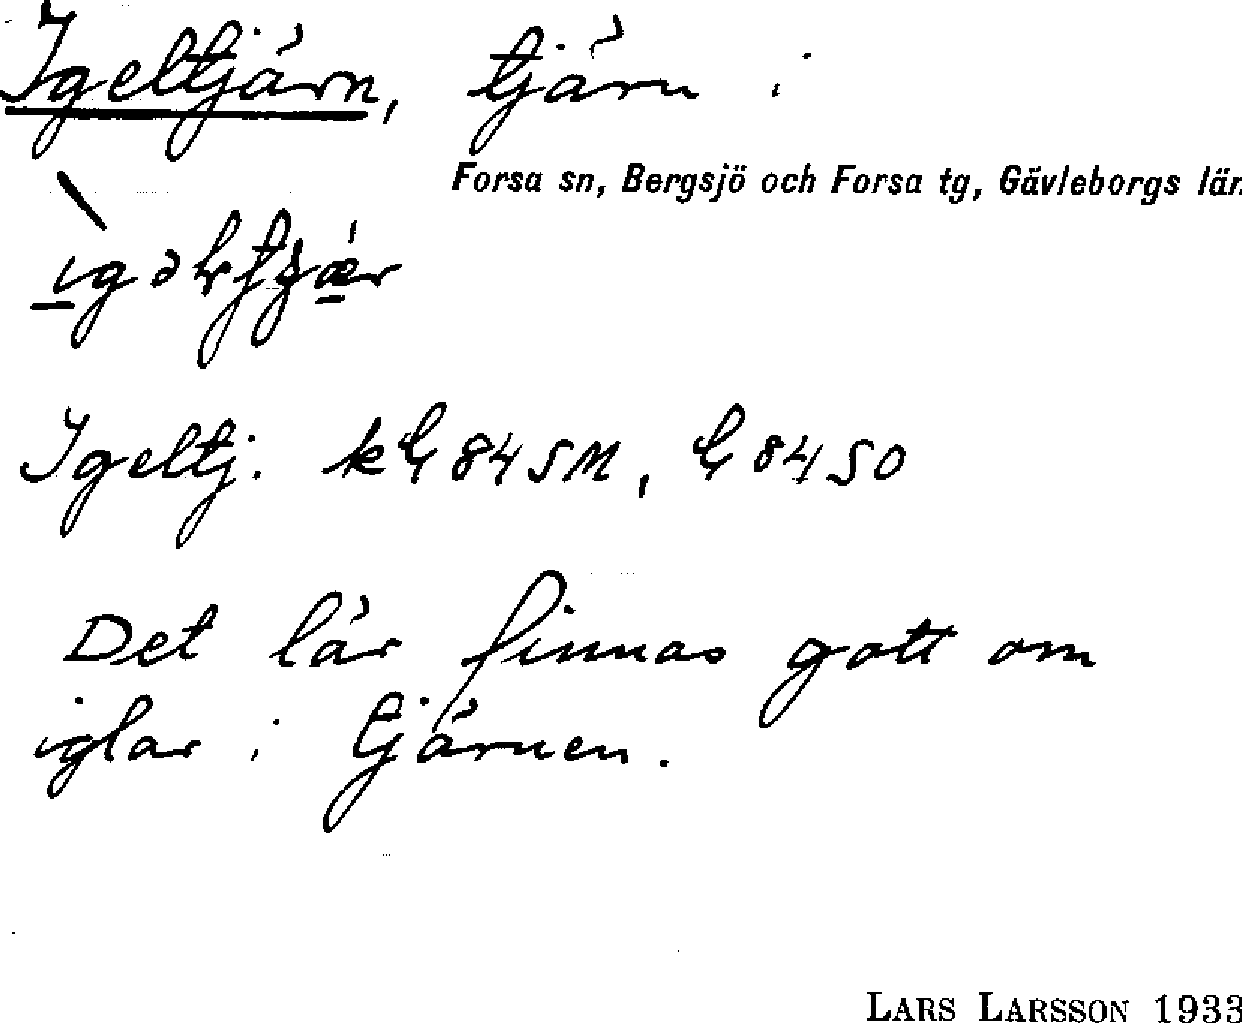 Igeltjärn, tjärn i
Forsa sn, Bergsjö och Forsa tg, Gävleborgs län
Igeltj. 84 SM, 84 SO
Det lär finnas gott om
iglar i tjärnen.
LARS LARSSON 1933